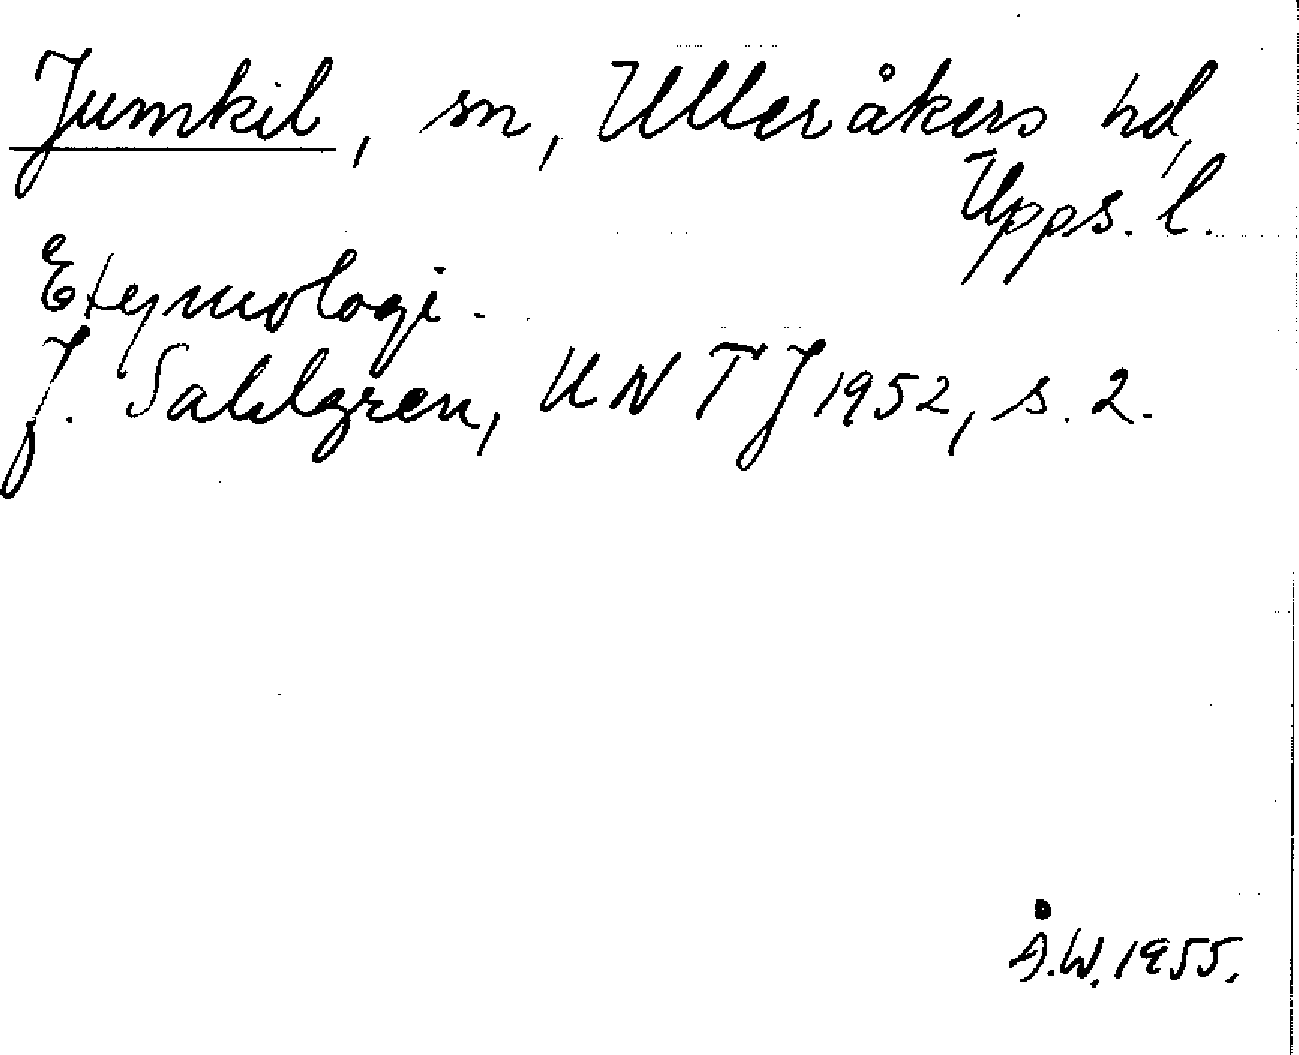 Jumkil, sn, Ulleråkers hd,
Upps. l.
Etymologi.
J. Sahlgren, UNTJ 1952, s. 2.
Å.W. 1955.